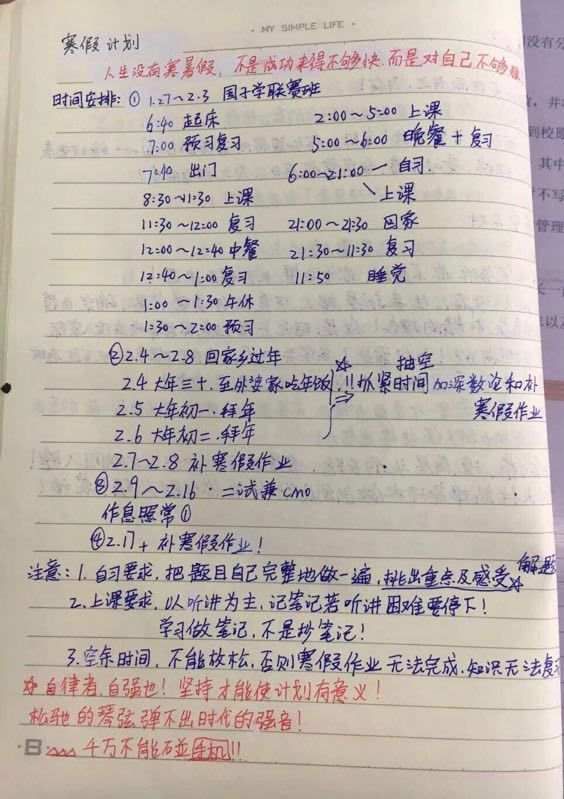 MY SIMPLE LIFE
寒假计划
人生没有寒暑假,不是成功来得不够快,而是对自己不够狠
时间安排:① 1.27~2.3 国子学联赛班
6:40 起床 2:00~5:00 上课
7:00 预习复习 5:00~6:00 晚餐+复习
7:40 出门 6:00~21:00 一自习.
8:30~11:30 上课 上课
11:30~12:00 复习 21:00~21:30 回家
12:00~12:40 中餐 21:30~11:30 复习
12:40~1:00 复习 11:50 睡觉
1:00~1:30 午休
1:30~2:00 预习
② 2.4~2.8 回家乡过年 抽空
2.4 大年三十.至外婆家吃年饭.!!抓紧时间 加深数论和补
2.5 大年初一.拜年 寒假作业
2.6 大年初二.拜年
2.7~2.8 补寒假作业
③ 2.9~2.16 二试兼cmo
作息照常①
④ 2.17+ 补寒假作业!
注意:1.自习要求,把题目自己完整地做一遍,挑出重点及感受 解题
2.上课要求,以听讲为主,记笔记若听讲困难要停下!
学习做笔记,不是抄笔记!
3.空余时间,不能放松,否则寒假作业无法完成,知识无法复
☆自律者,自强也!坚持才能使计划有意义!
松驰的琴弦弹不出时代的强音!
千万不能碰手机!!